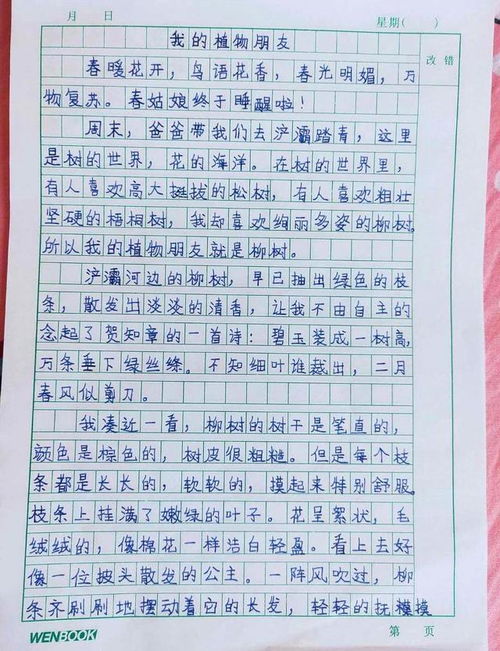 月 日 星期( )
我的植物朋友
改错
春暖花开，鸟语花香，春光明媚，万
物复苏。春姑娘终于睡醒啦！
周末，爸爸带我们去浐灞踏青，这里
是树的世界，花的海洋。在树的世界里，
有人喜欢高大挺拔的松树，有人喜欢粗壮
坚硬的梧桐树，我却喜欢绚丽多姿的柳树。
所以我的植物朋友就是柳树。
浐灞河边的柳树，早已抽出绿色的枝
条，散发出淡淡的清香，让我不由自主的
念起了贺知章的一首诗：碧玉装成一树高，
万条垂下绿丝绦。不知细叶谁裁出，二月
春风似剪刀。
我凑近一看，柳树的树干是笔直的，
颜色是棕色的，树皮很粗糙。但是每个枝
条都是长长的，软软的，摸起来特别舒服。
枝条上挂满了嫩绿的叶子。花呈絮状，毛
绒绒的，像棉花一样洁白轻盈。看上去好
像一位披头散发的公主。一阵风吹过，柳
条齐刷刷地摆动着它的长发，轻轻的抚摸摸
WENBOOK 第 页